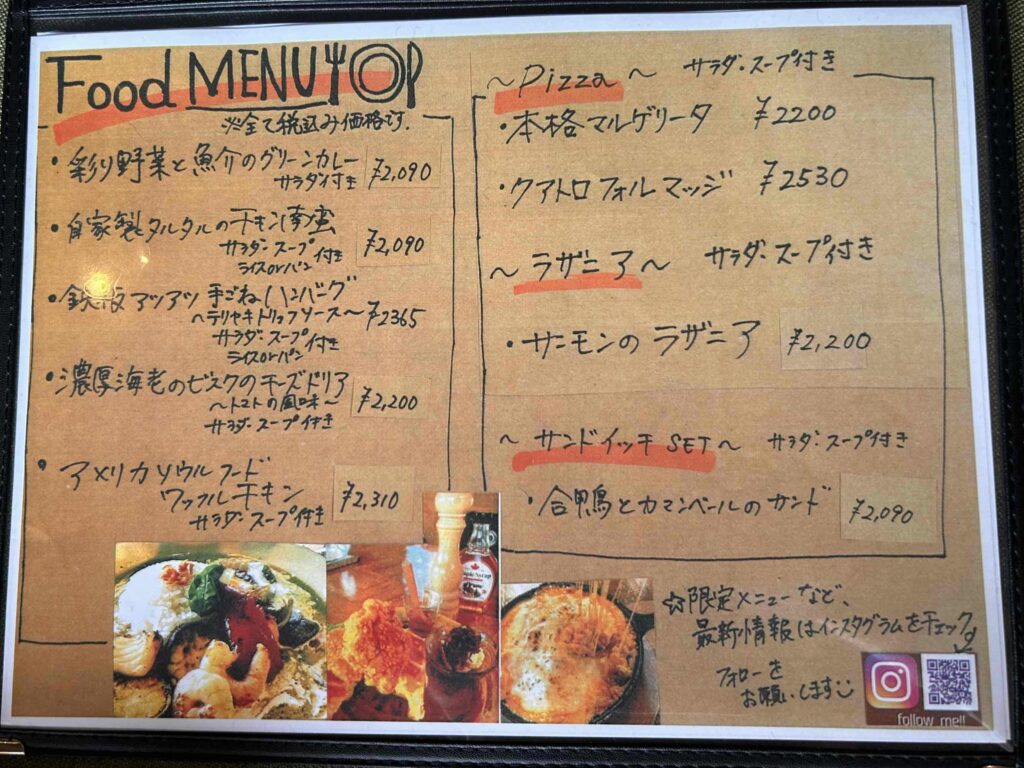 Food MENU
※全て税込み価格です.
・彩り野菜と魚介のグリーンカレー
サラダ付き ¥2,090
・自家製タルタルのチキン南蛮
サラダ・スープ付き
ライスorパン ¥2,090
・鉄板アツアツ手ごねハンバーグ
〜テリヤキトリュフソース〜 ¥2365
サラダ・スープ付き
ライスorパン
・濃厚海老のビスクのチーズドリア
〜トマトの風味〜 ¥2,200
サラダ・スープ付き
・アメリカソウルフード
ワッフルチキン
サラダ・スープ付き ¥2,310
〜Pizza〜 サラダ・スープ付き
・本格マルゲリータ ¥2200
・クアトロフォルマッジ ¥2530
〜ラザニア〜 サラダ・スープ付き
・サーモンのラザニア ¥2,200
〜サンドイッチSET〜 サラダ・スープ付き
・合鴨とカマンベールのサンド ¥2,090
☆限定メニューなど、
最新情報はインスタグラムをチェック
フォローを
お願いします
follow me!!